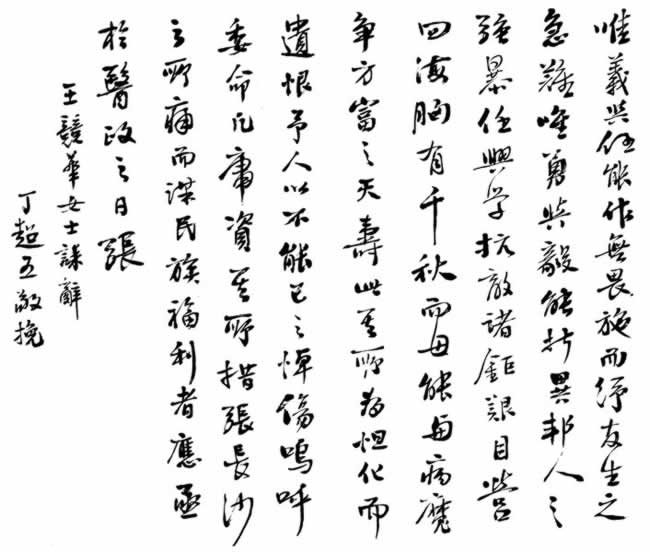 唯義與任能作無畏施而紓友生之
急難唯勇與毅能折異邦人之
強暴任興学抗敵諸鉅艱目營
四海胸有千秋而毋能與病魔
争方富之天壽此其所為怛化而
遺恨予人以不能已之悼傷嗚呼
委命凡庸資其所措張長沙
之所痛而謀民族福利者應亟
於醫政之日張
王競華女士誄辭
丁超五敬挽